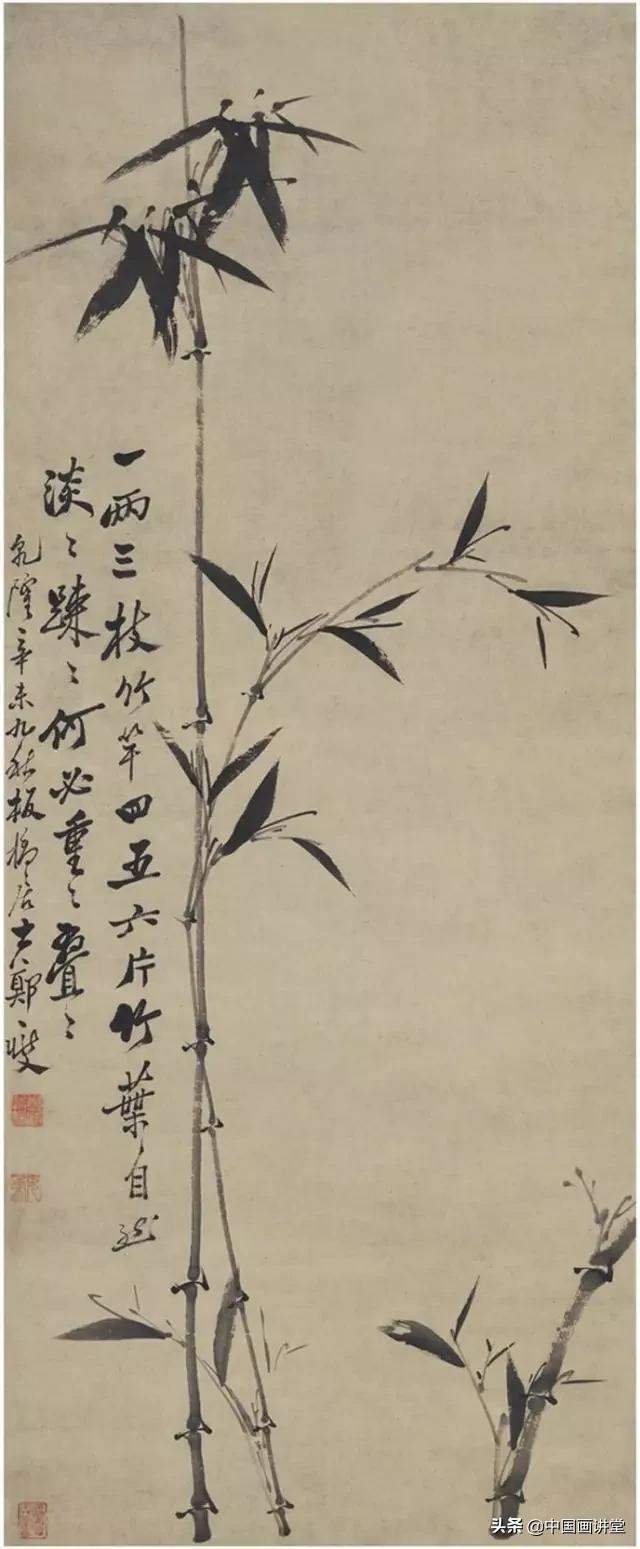 一两三枝竹竿四五六片竹葉自然
淡〻疎〻何必重〻疊〻
乾隆辛未九秋板橋居士鄭燮
头条 @中国画讲堂